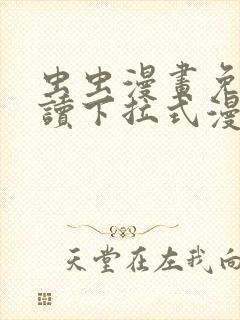 虫虫漫畫免
讀下拉式漫
天堂在左我向